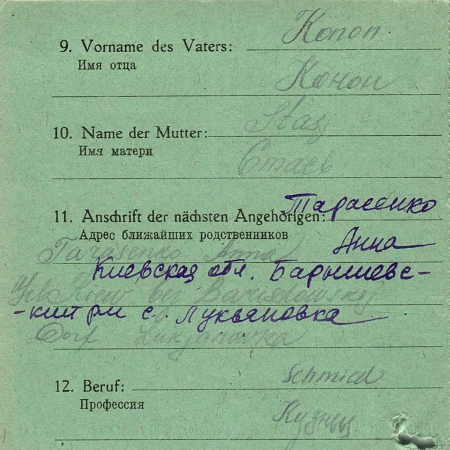 9. Vorname des Vaters: Konon
Имя отца
Конон
10. Name der Mutter: Stasj
Имя матери
Стаев
Тарасенко
11. Anschrift der nächsten Angehörigen:
Адрес ближайших родственников
Tarasenko Anna
Анна
Киевская обл. Барышевс-
-кий р-н с. Лукьяновка
Dorf Lukjanowka
12. Beruf: Schmied
Профессия
Кузнец